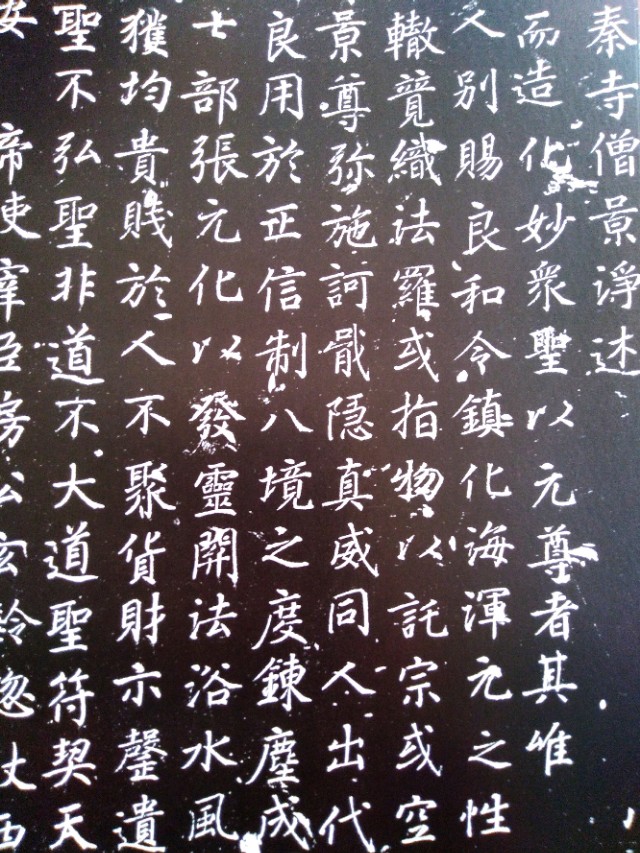 秦寺僧景淨述
而造化妙眾聖以元尊者其唯
人別賜良和令鎮化海渾元之性
轍競織法羅或指物以託宗或空
景尊弥施訶戢隐真威同人出代
良用於正信制八境之度鍊塵成
七部張元化以發靈關法浴水風
獲均貴賤於人不聚貨財示罄遺
聖不弘聖非道不大道聖符契天
帝使宰臣房公玄齡惣仗西